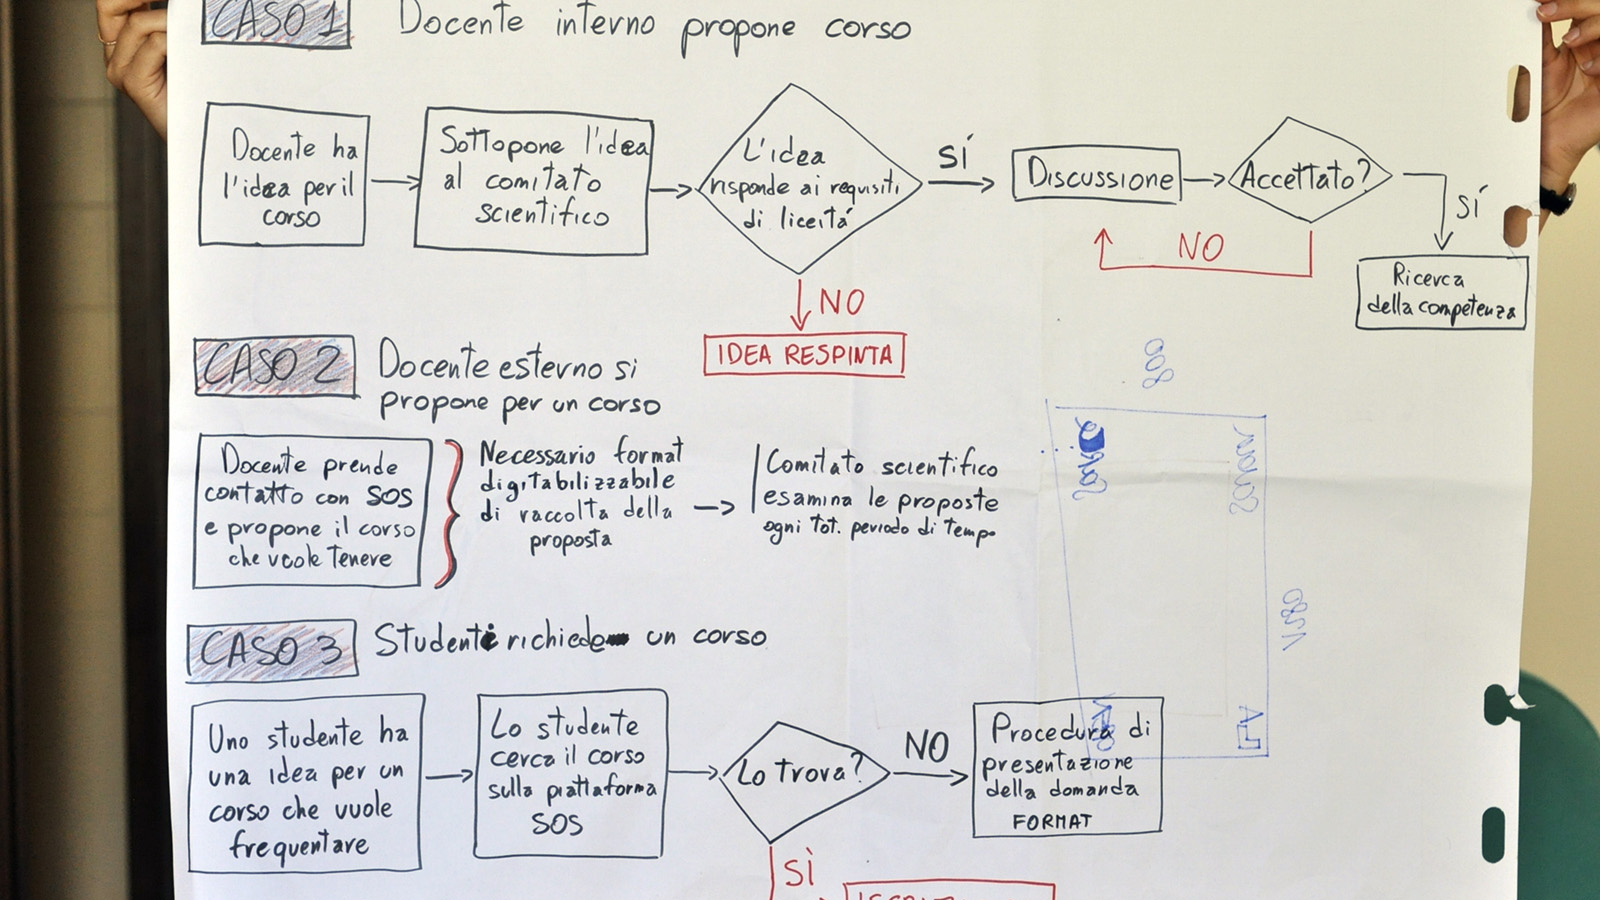 CASO 1 Docente interno propone corso
Docente ha
l'idea per il
corso
Sottopone l'idea
al comitato
scientifico
L'idea
risponde ai requisiti
di liceitá
SÍ
Discussione
Accettato?
SÍ
Ricerca
della competenza
NO
NO
IDEA RESPINTA
CASO 2 Docente esterno si
propone per un corso
Docente prende
contatto con SOS
e propone il corso
che vuole tenere
Necessario format
digitabilizzabile
di raccolta della
proposta
Comitato scientifico
esamina le proposte
ogni tot. periodo di tempo
800
CASO 3 Studenti richiede un corso
Uno studente ha
una idea per un
corso che vuole
frequentare
Lo studente
cerca il corso
sulla piattaforma
SOS
Lo trova?
NO
Procedura di
presentazione
della domanda
FORMAT
SÌ